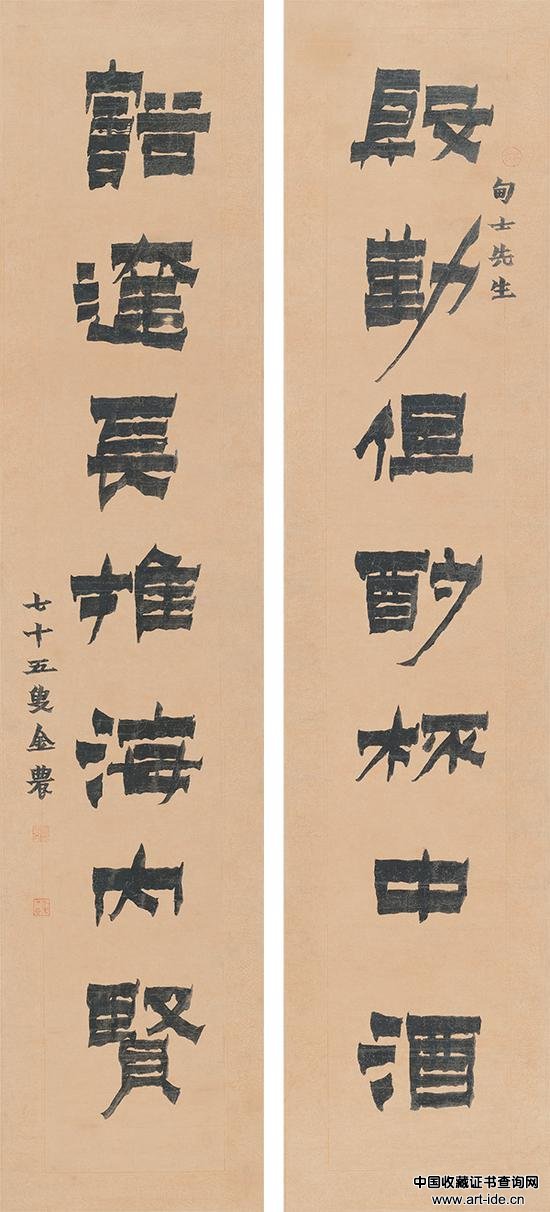 甸士先生
殷勤但酌杯中酒
豁達長推海內賢
七十五叟金農
中国收藏证书查询网
www.art-ide.cn